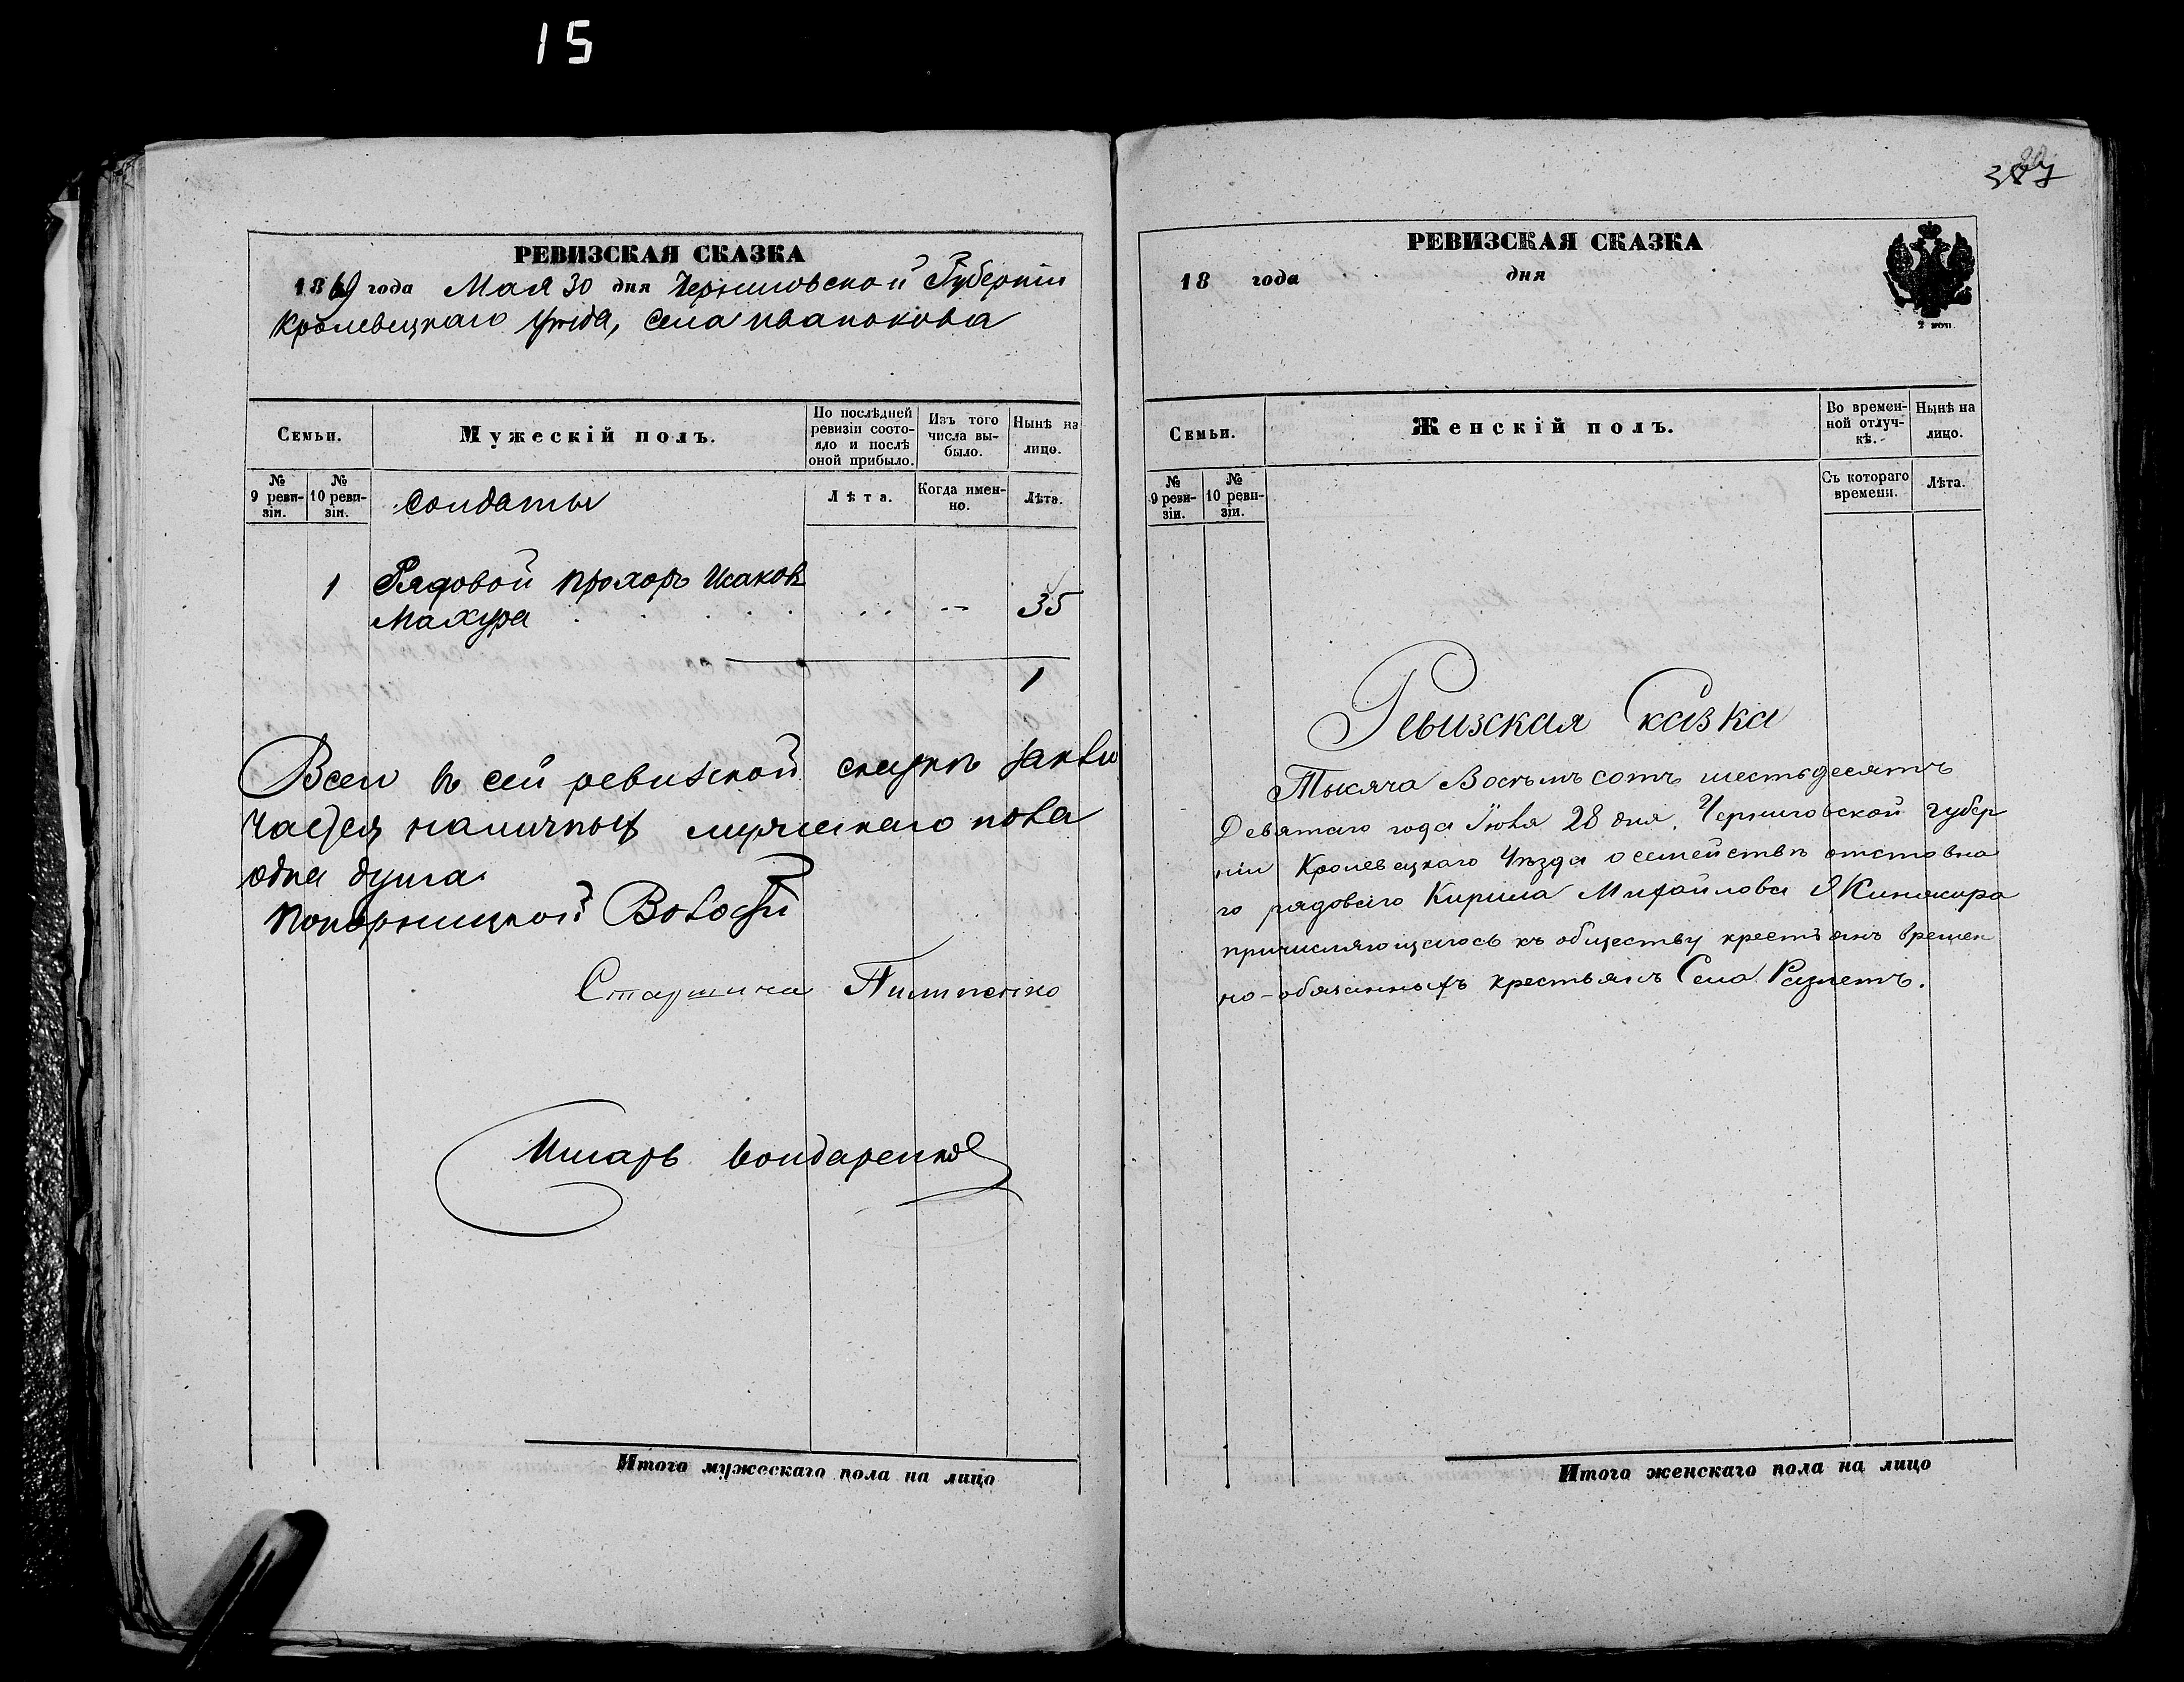 15
РЕВИЗСКАЯ СКАЗКА
1869 года Мая 30 дня Черниговской Губерніи
Кролевецкаго уѣзда, села Иванокова
Семьи.
Мужескій полъ.
По послѣдней ревизіи состо-
яло и послѣ оной прибыло.
Изъ того числа вы-
было.
Нынѣ на лицо.
№ 9 реви-
зіи.
№ 10 реви-
зіи.
солдаты
Лѣта.
Когда имен-
но.
Лѣта.
1 Рядовой Прохоръ Исаковъ
Махура . . . . . . -- 35
1
Всего въ сей ревизской сказкѣ заклю
чается наличныхъ мужескаго пола
одна душа
Понорницкой Волости
Старшина Пилипенко
Писарь Бондаренко
Итого мужескаго пола на лицо
РЕВИЗСКАЯ СКАЗКА
18 года дня
2 коп.
Семьи.
Женскій полъ.
Во времен-
ной отлуч-
кѣ.
Нынѣ на лицо.
№ 9 реви-
зіи.
№ 10 реви-
зіи.
Съ котораго времени.
Лѣта.
Ревизская Сказка
Тысяча Восѣмъ сотъ шестьдесятъ
Девятаго года Іюля 28 дня, Черниговской губер
ніи Кролевецкаго Уѣзда о семействѣ отставна
го рядоваго Кирила Михайлова
причисляющагось къ обществу крестьянъ времен
но-обязанныхъ крестьянъ Села Разлетъ.
Итого женскаго пола на лицо